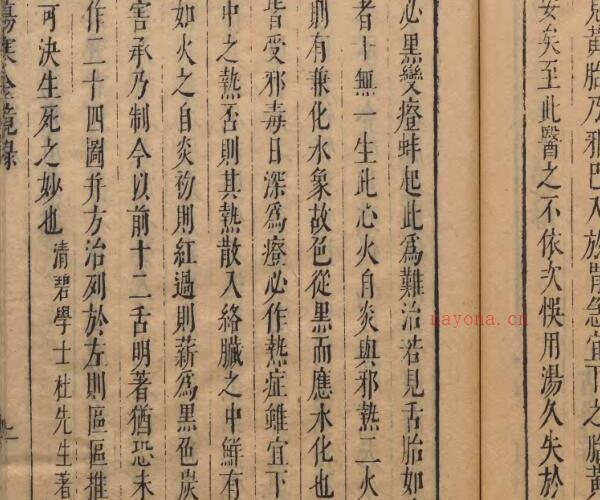 見黃胎乃邪已入於散急宜下之胎黃
安矣至此醫之不依次悞用湯久失於
必黑變癍蚌起此爲難治若見舌胎如
者十無一生此心火自炎與邪熱二火
則有兼化水象故色從黑而應水化也
皆受邪毒日深爲癍必作熱症雖宜下
中之熱否則其熱散入絡臟之中鮮有
如火之自炎初則紅過則薪爲黑色炭
害承乃制今以前十二舌明著猶恐未
作二十四圖并方治列於左則區區推
可決生死之妙也 清碧學士杜先生著
傷寒金鏡錄
nayona.cn